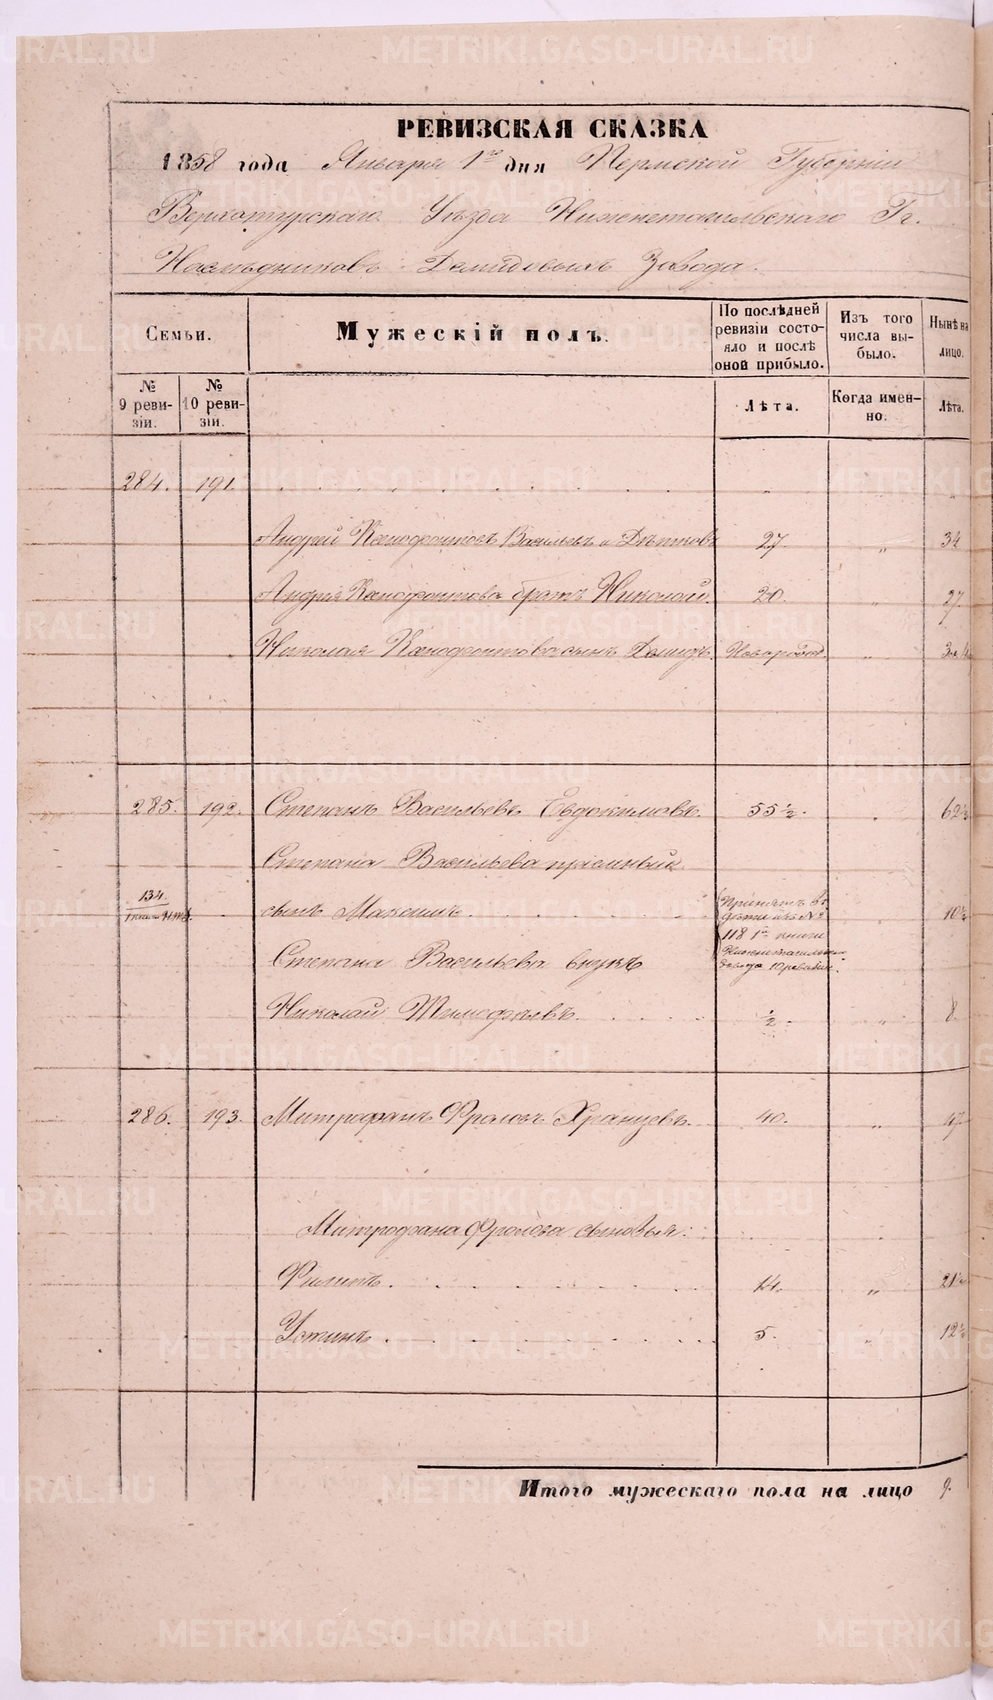 РЕВИЗСКАЯ СКАЗКА
1858 года Января 1го дня Пермской Губернiи
Верхотурскаго Уѣзда Нижнетагильскаго Гг.
Наслѣдниковъ Демидовыхъ Завода.
Семьи.
Мужескiй полъ.
По послѣдней
ревизiи состо-
яло и послѣ
оной прибыло.
Изъ того
числа вы-
было.
Нынѣ на
лицо.
№
9 реви-
зiи.
№
10 реви-
зiи.
Лѣта.
Когда имен-
но.
Лѣта.
284. 191.
Андрей Ксенофонтовъ Васильевъ и Дѣтковъ 27. „ 34
Андрея Ксенофонтова братъ Николай. 20. „ 27.
Николая Ксенофонтова сынъ Демидъ. Новорожд. „
285. 192. Степанъ Васильевъ Евдокимовъ. 55½. 62½
Степана Васильева прiемный
134. сынъ Максимъ. 10½
Принятъ въ
118 1й книги
Нижнетагильскаго
завода 10 ревизiи.
Степана Васильева внукъ
Николай Тимофѣевъ. ½. „ 8.
286. 193. Митрофанъ Фроловъ Хранцевъ. 40. „ 47
Митрофана Фролова сыновья:
Филипъ. 14. „ 21½
Устинъ. 5. „ 12½
Итого мужескаго пола на лицо 9.
METRIKI.GASO-URAL.RU